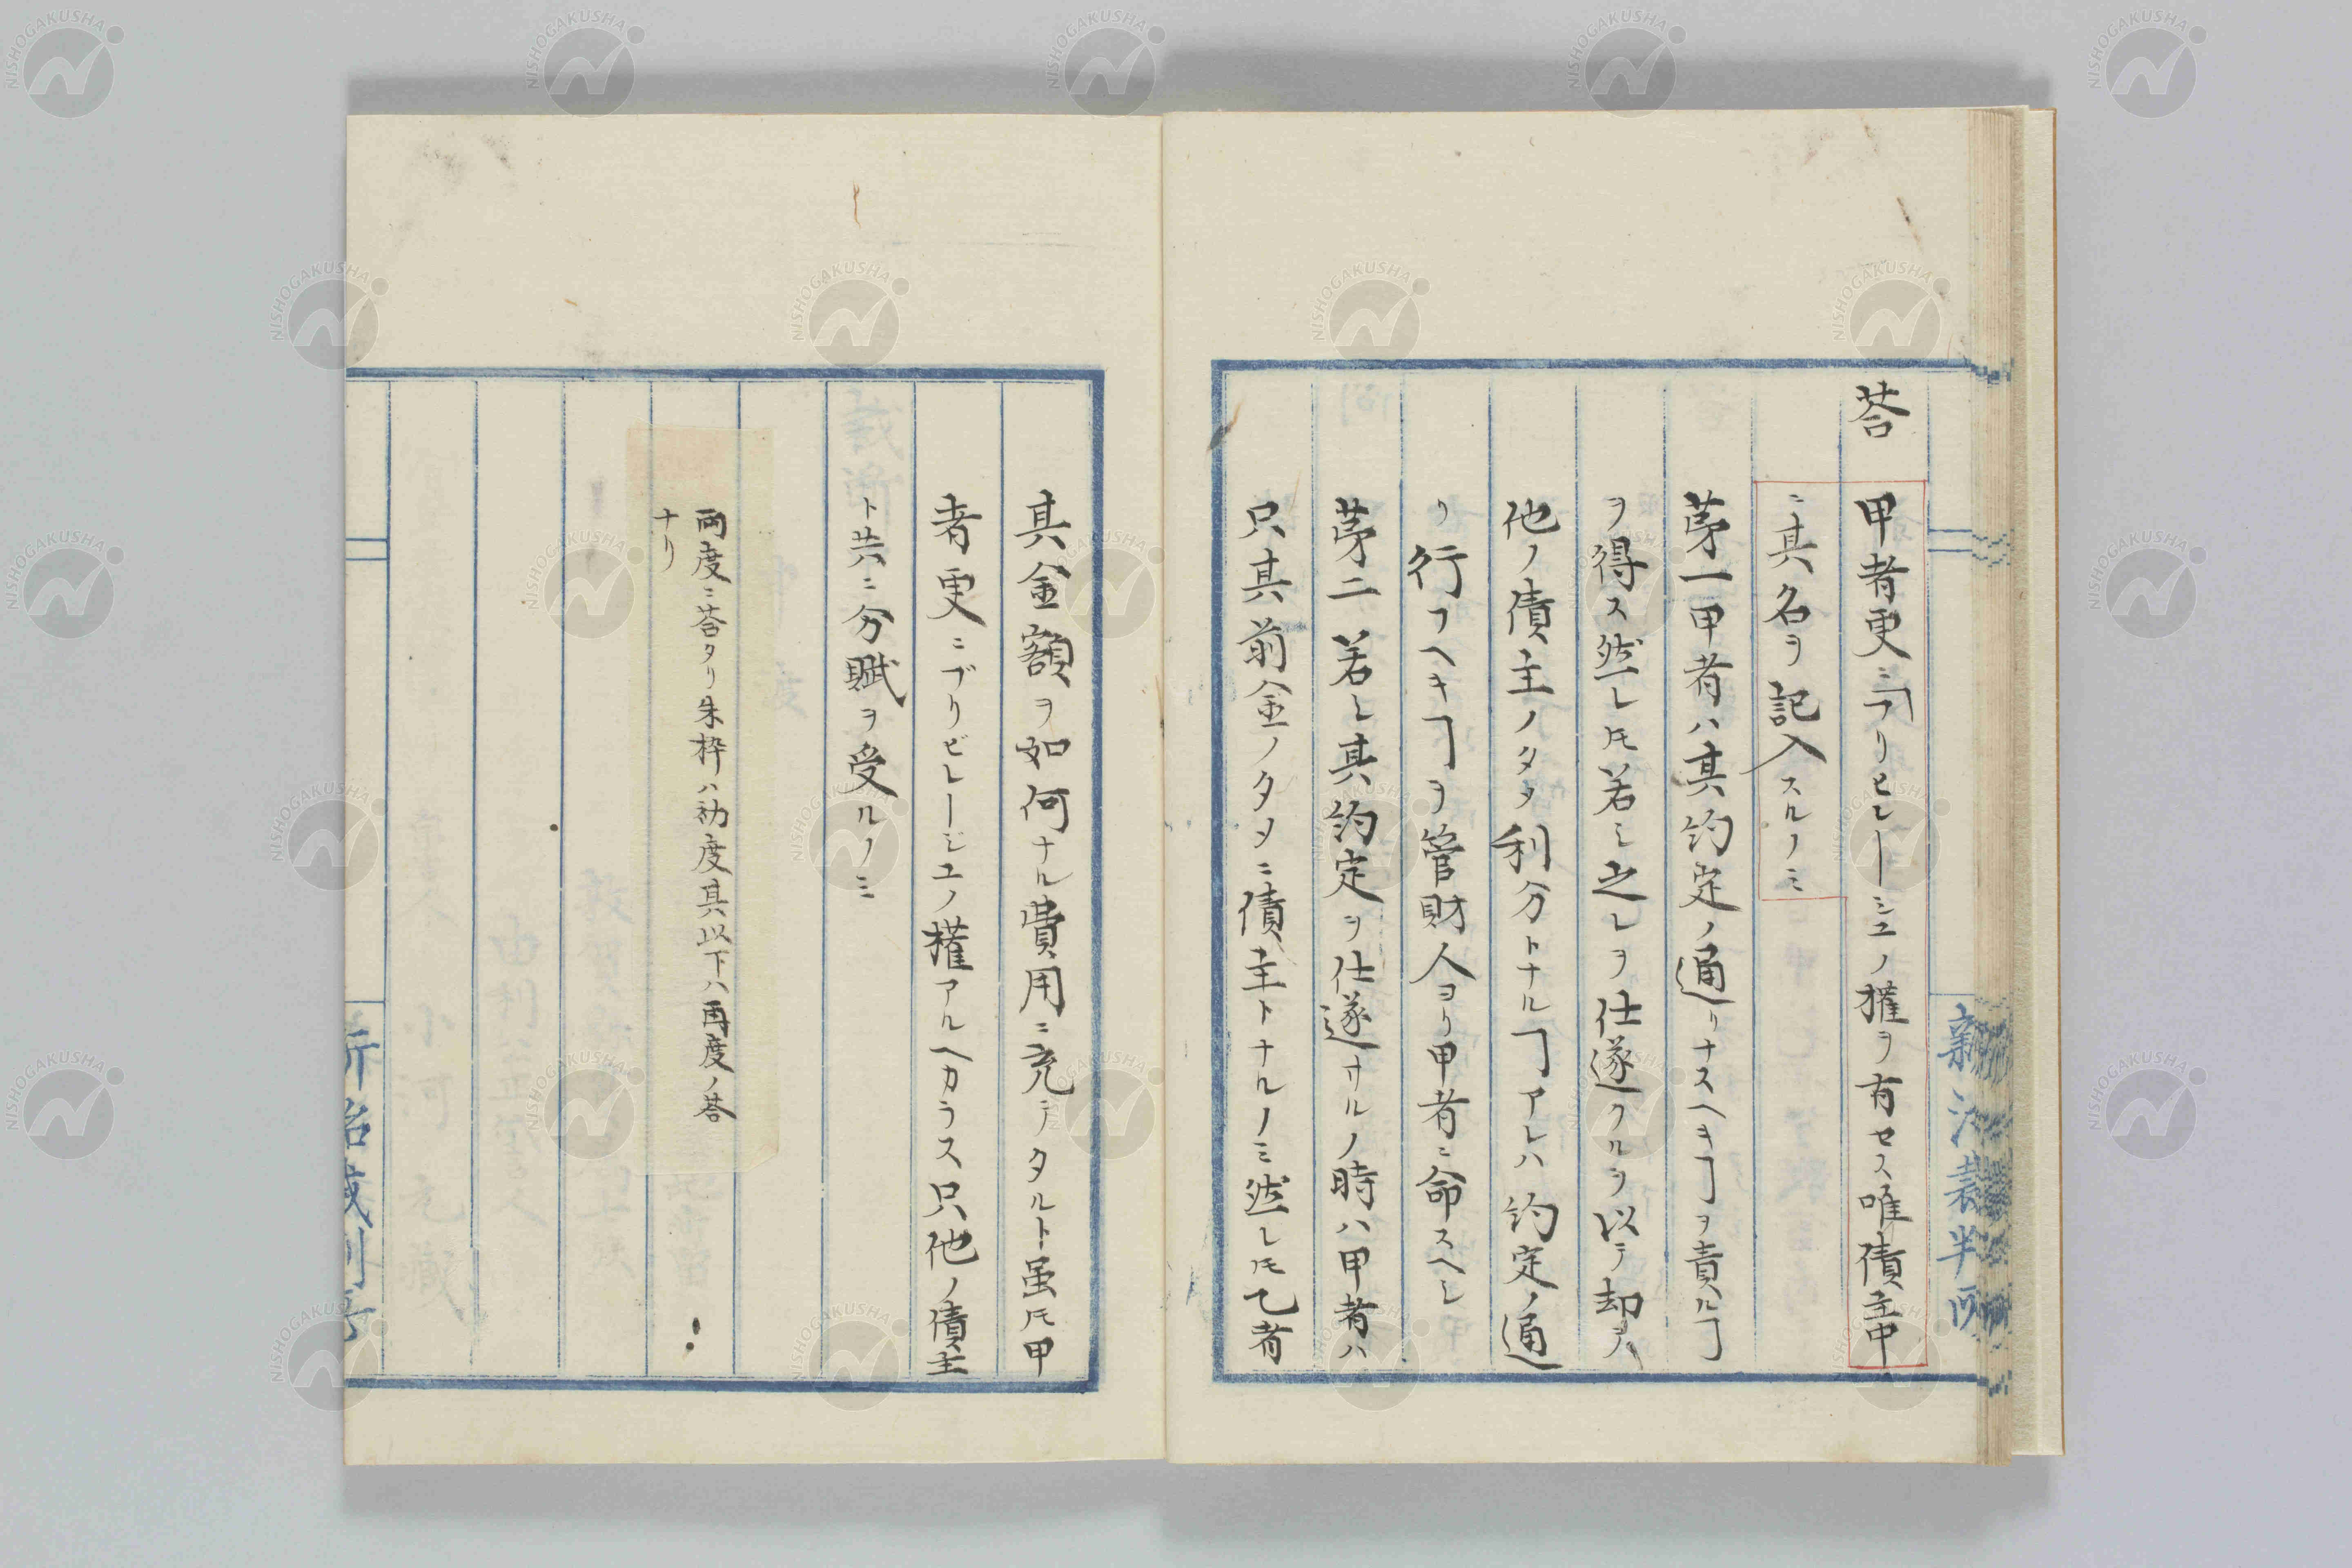 答
甲者更ニフリビレージユノ權ヲ有セス唯債主中
ニ其名ヲ記入スルノミ
茅一甲者ハ其約定ノ通リナスヘキヿヲ責ルヿ
ヲ得ス然レ𪜈若シ之レヲ仕遂クルヲ以テ却テ
他ノ債主ノタメ利分トナルヿアレハ約定ノ通
リ行フヘキヿヲ管財人ヨリ甲者ニ命スヘシ
茅二若シ其約定ヲ仕遂サルノ時ハ甲者ハ
只其前金ノタメニ債主トナルノミ然レ𪜈乙者
其金額ヲ如何ナル費用ニ充テタルト虽𪜈甲
者更ニプリビレージユノ權アルヘカラス只他ノ債主
ト共ニ分賦ヲ受ルノミ
両度ニ荅タリ朱枠ハ初度其以下ハ再度ノ荅
ナリ
NISHOGAKUSHA